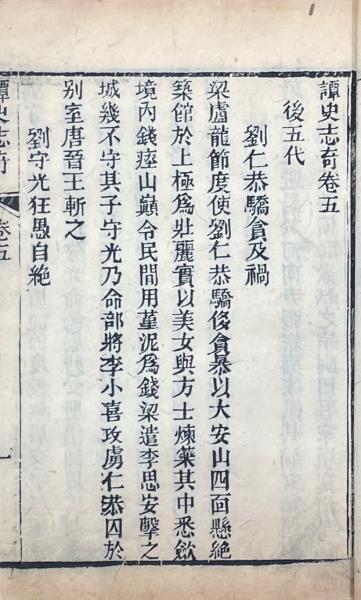 譚史志奇卷五
後五代
劉仁恭驕貪及禍
梁盧龍節度使劉仁恭驕侈貪暴以大安山四面懸絶
築館於上極爲壯麗實以美女與方士煉藥其中悉歛
境内錢瘞山巔令民間用堇泥爲錢梁遣李思安擊之
城幾不守其子守光乃命部將李小喜攻虜仁恭囚於
别室唐晉王斬之
劉守光狂愚自絶
譚史志奇
卷之五
一